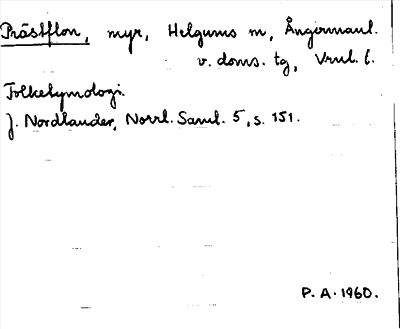 Prästflon, myr, Helgums m, Ångermanl.
v. doms. tg, Vrml. l.
Folketymologi.
J. Nordlander, Norrl. Saml. 5, s. 151.
P. A. 1960.